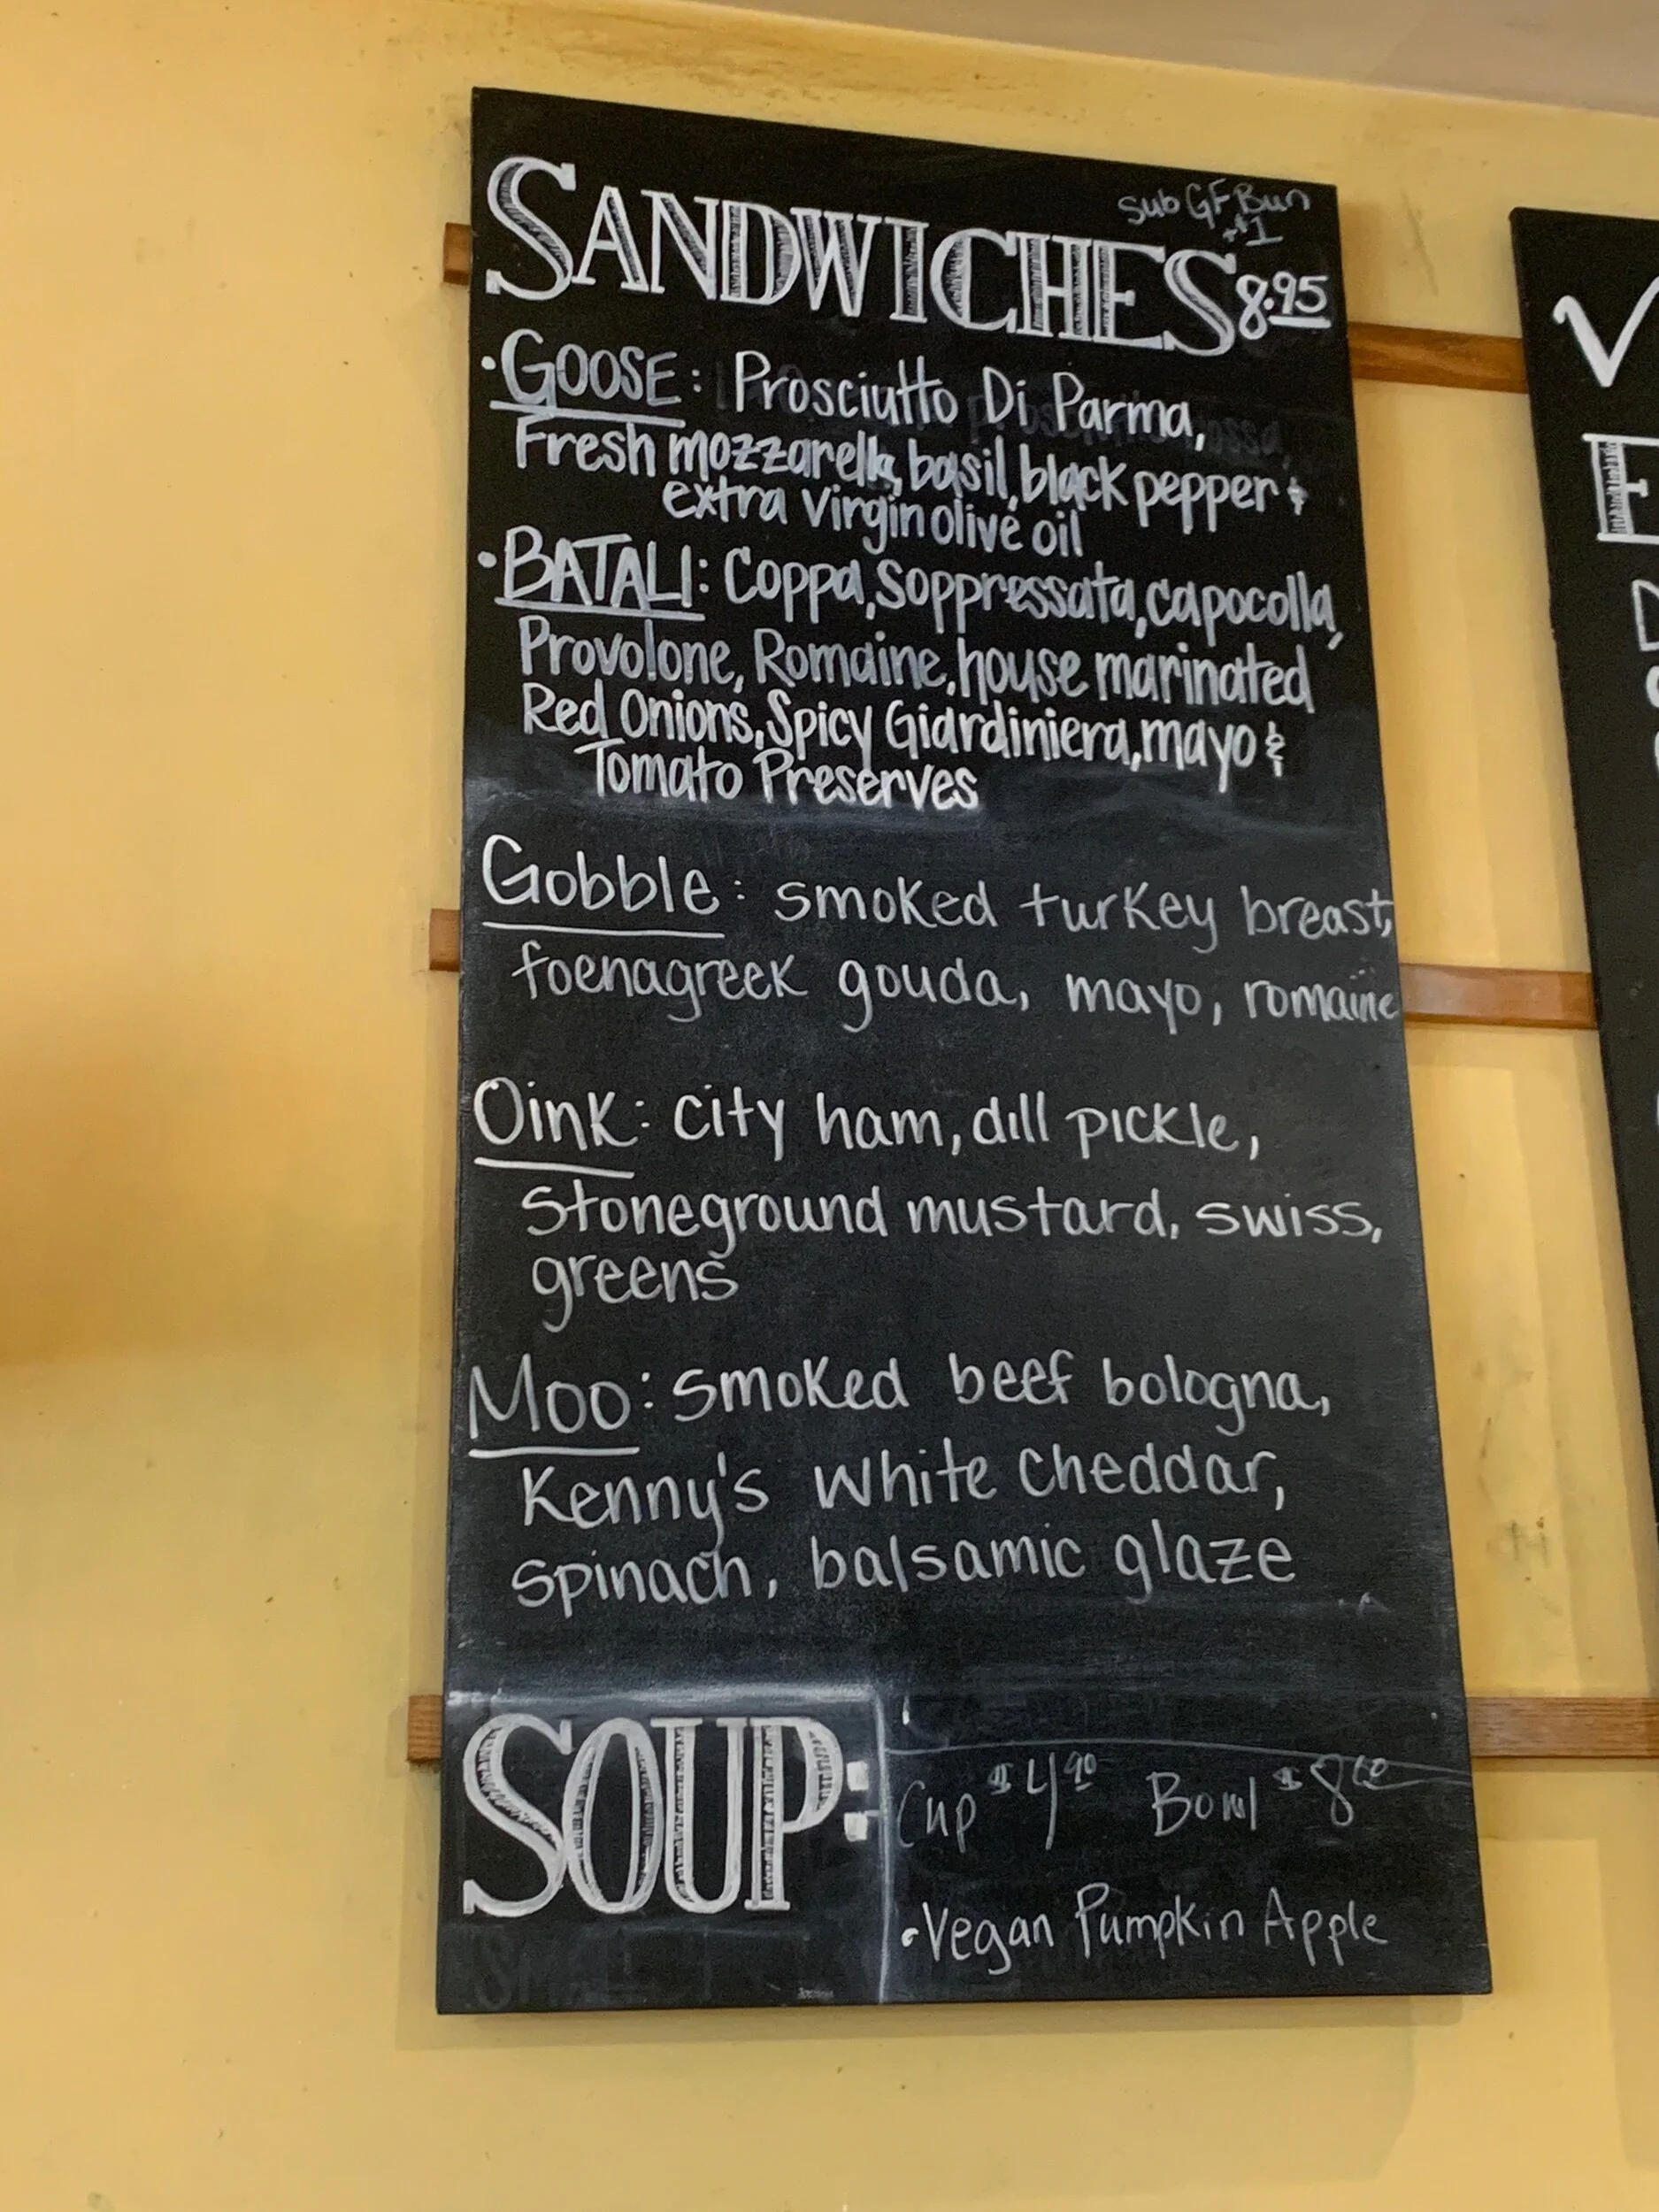 Sub GF Bun
+$1
SANDWICHES 8.95
• GOOSE: Prosciutto Di Parma,
Fresh mozzarella, basil, black pepper &
extra virgin olive oil
• BATALI: Coppa, Soppressata, capocolla,
Provolone, Romaine, house marinated
Red Onions, Spicy Giardiniera, mayo &
Tomato Preserves
Gobble: smoked turkey breast,
foenagreek gouda, mayo, romaine
Oink: city ham, dill pickle,
stoneground mustard, swiss,
greens
Moo: smoked beef bologna,
Kenny's white cheddar,
spinach, balsamic glaze
SOUP:
Cup $4.90 Bowl $8
• Vegan Pumpkin Apple